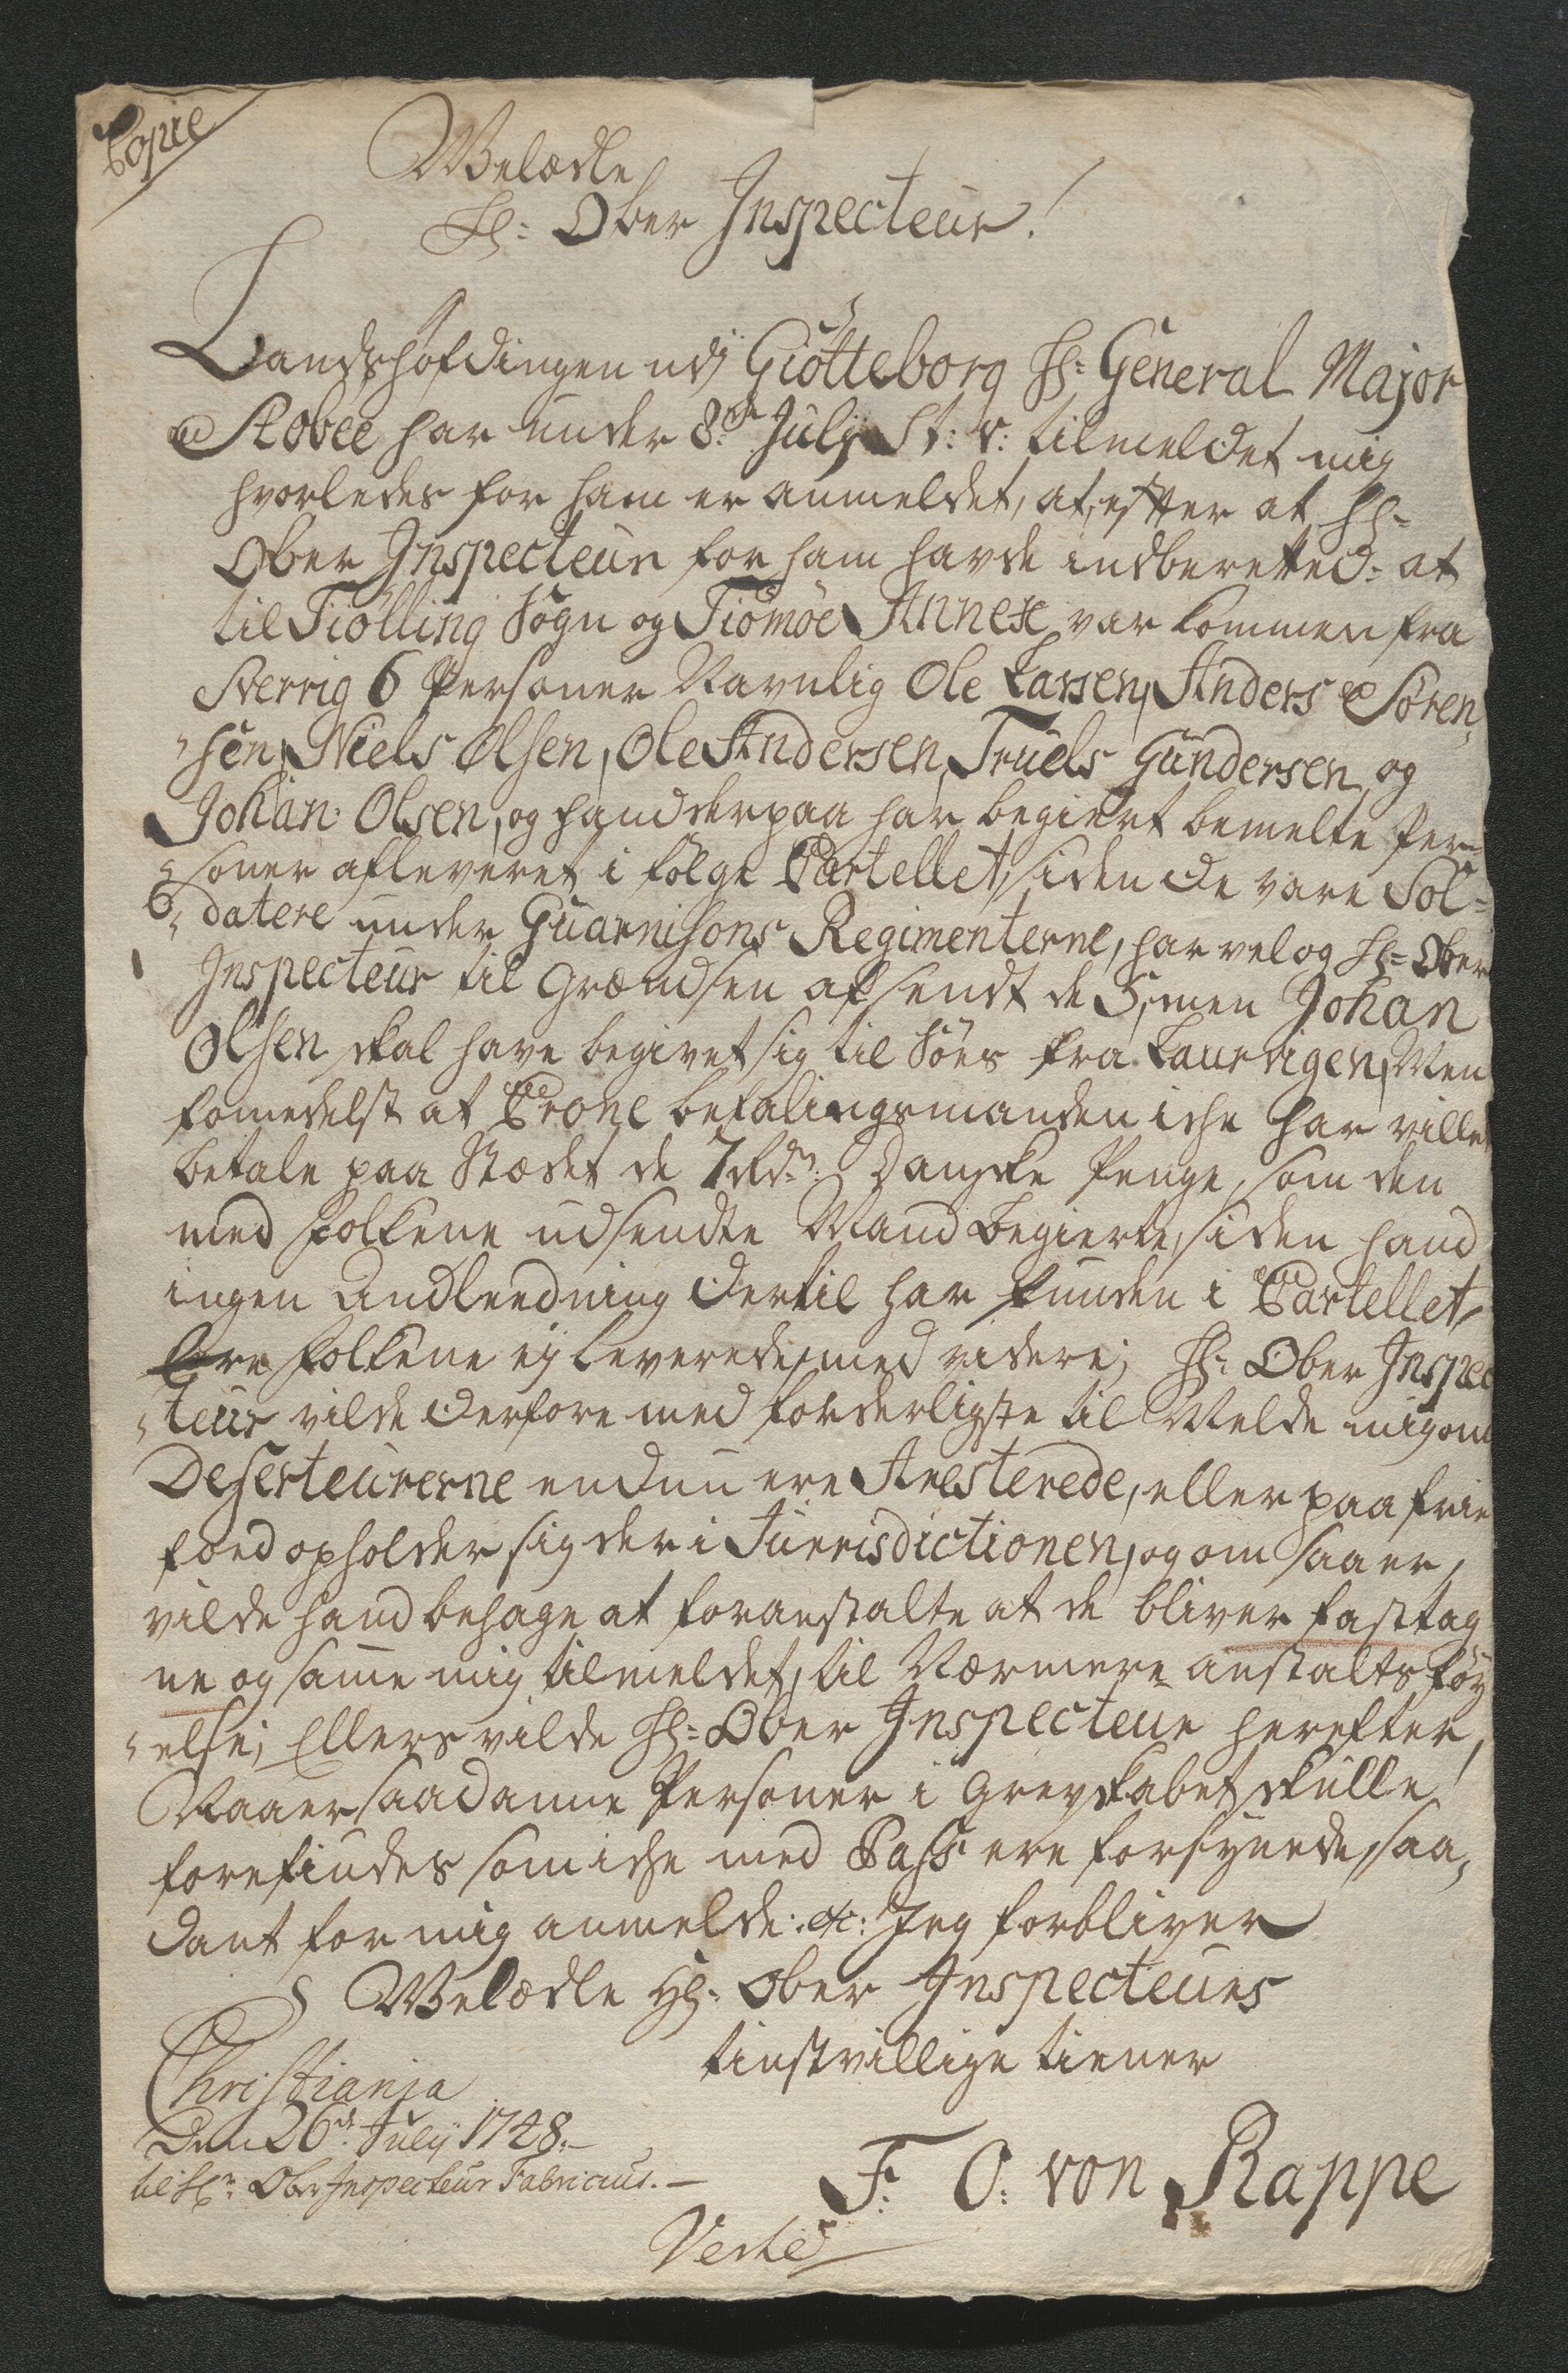 Copie
Welædle
Hr: Ober Inspecteur!
Landshöfdingen udj Giötteborg Hr: General Major
Kovee har under 8de Julij St: v: tilmeldet mig
hvorledes for ham er anmeldet, at, efter at Hr:
Ober Inspecteur for ham havde indberetted: at
til Tiølling Sogn og Tiømøe Annex var kommen fra
Sverrig 6 Personer Navnlig Ole Larsen, Anders Søren„
„sen, Niels Olsen, Ole Andersen, Truels Gundersen og
Johan Olsen, og hand derpaa har begiert bemelte Per„
„soner afleveret i følge Cartellet, siden de vare Sol„
„datere under Guarnisons Regimenterne, har vel og Hr: Ober
Inspecteur til Grændsen afsendt de 5, men Johan
Olsen skal have begivet sig til Søes fra Laurvigen, Men
fomedelst at Crone befalingsmanden iche har villet
betale paa Stædet de 7 Rdr: Danske Penge, som den
med Folkene udsendte Mand begierte, siden hand
ingen Andleedning dertil har funden i Cartellet,
Ere Folkene ej leverede, med videre; Hr: Ober Inspec
„teur vilde derfore med forderligste til Melde mig om
Deserteurerne endnu ere Aresterede, eller paa frie
foed opholder sig der i Juurisdictionen, og om saa er,
vilde hand behage at foranstalte at de bliver fasttag
ne og samme mig tilmeldet, til Nærmere anstalts föy
„else; Ellers vilde Hr: Ober Inspecteur herefter,
Naar saadanne Personer i Grevskabet skulle
forefindes som iche med Pass ere forsynede, saa„
dant for mig anmelde: etc: Jeg forbliver
Welædle Hr: Ober Inspecteurs
tienstvillige tiener
Christiania
Den 26de Julij 1748.—
til Hr: Ober Inspecteur Fabricius.—
F: C: von Rappe
Verte